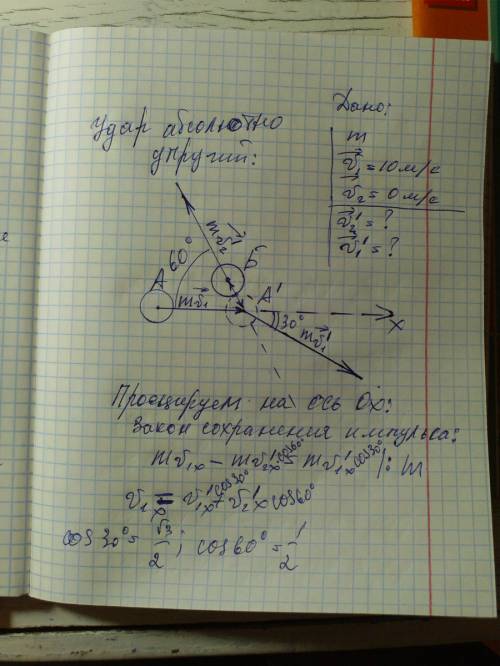 Удар абсолютно
упругий:
Дано:
m
v⃗₁ = 10 м/с
v⃗₂ = 0 м/с
v⃗₂' = ?
v⃗₁' = ?
mv⃗₂'
60°
Б
A
A'
mv⃗₁
30°
mv⃗₁'
x
Проецируем на ось Ox:
Закон сохранения импульса:
cos60° = mv₁'ₓ cos30° /: m
v₁ₓ = v₁'ₓ cos30° + v₂'ₓ cos60°
cos30° = √3/2; cos60° = 1/2